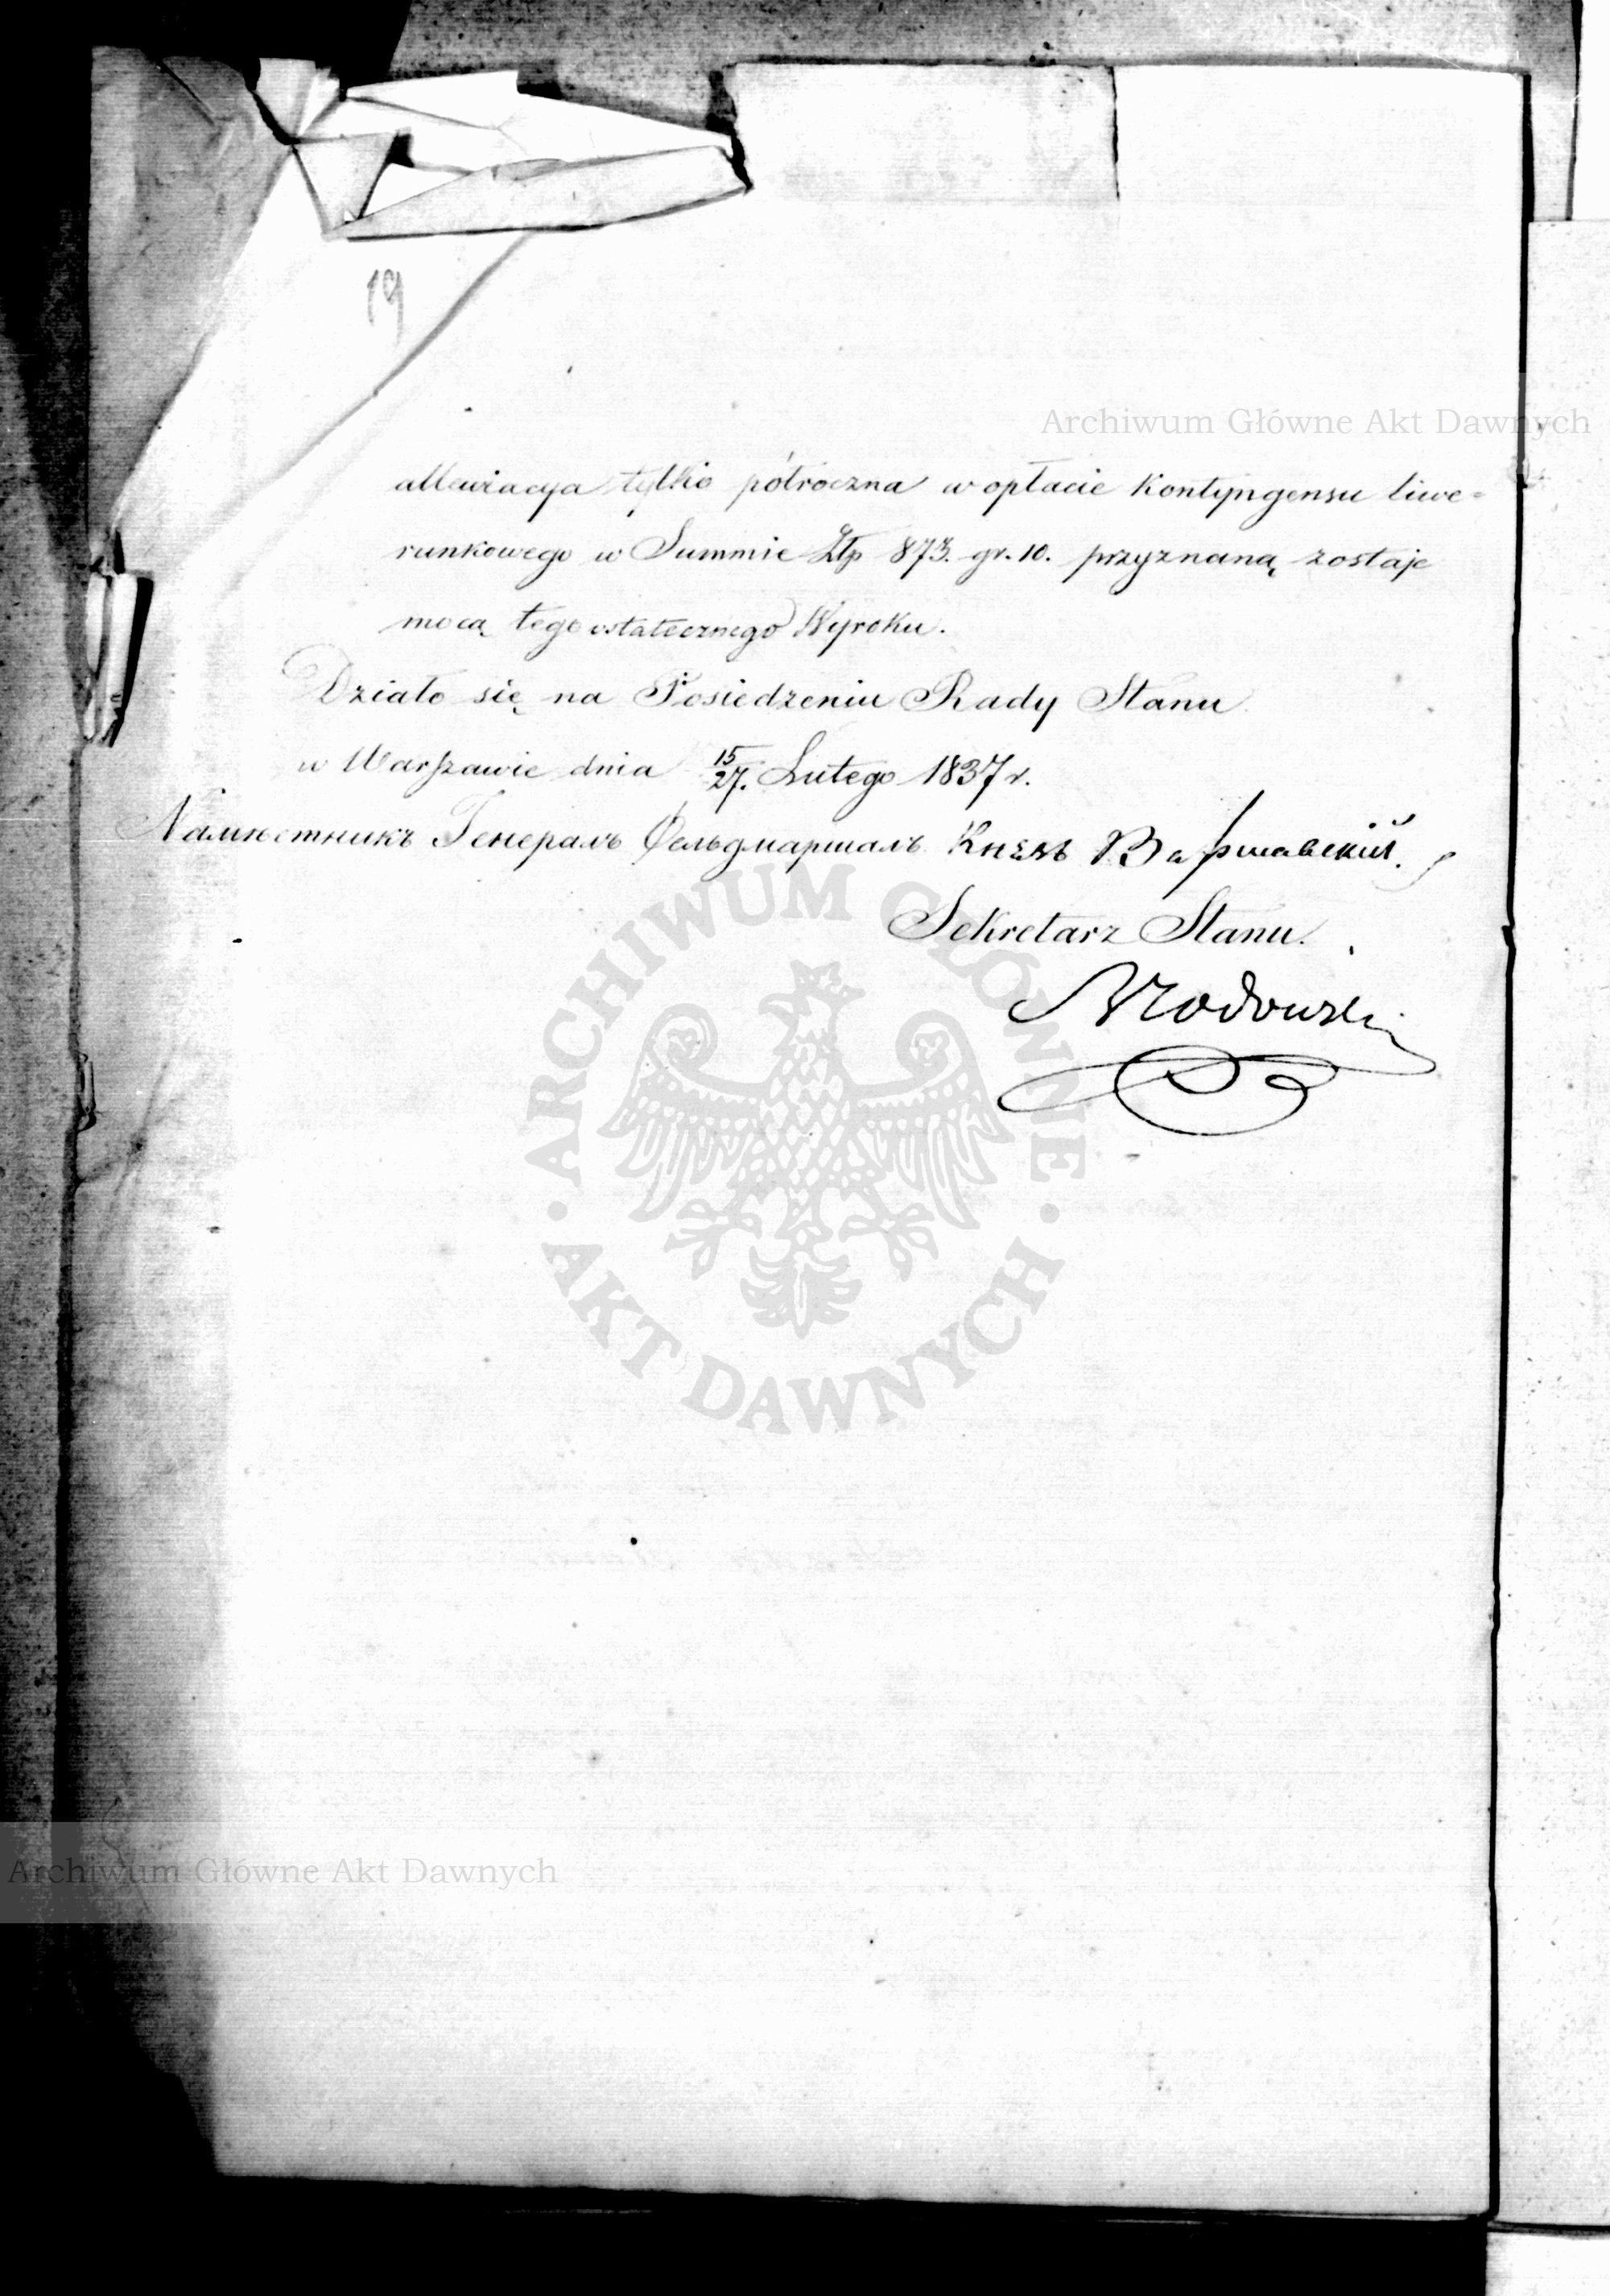 19
Archiwum Główne Akt Dawnych
allewiacya tylko półroczna w opłacie kontyngensu liwe=
runkowego w Summie Złp 873. gr. 10. przyznaną zostaje
mocą tego ostatecznego Wyroku.
Działo się na Posiedzeniu Rady Stanu
w Warszawie dnia 15/27. Lutego 1837 r.
Намѣстникъ Генералъ Фельдмаршалъ Князь Варшавскій.
Sekretarz Stanu.
ARCHIWUM GŁÓWNE
· AKT DAWNYCH ·
Archiwum Główne Akt Dawnych